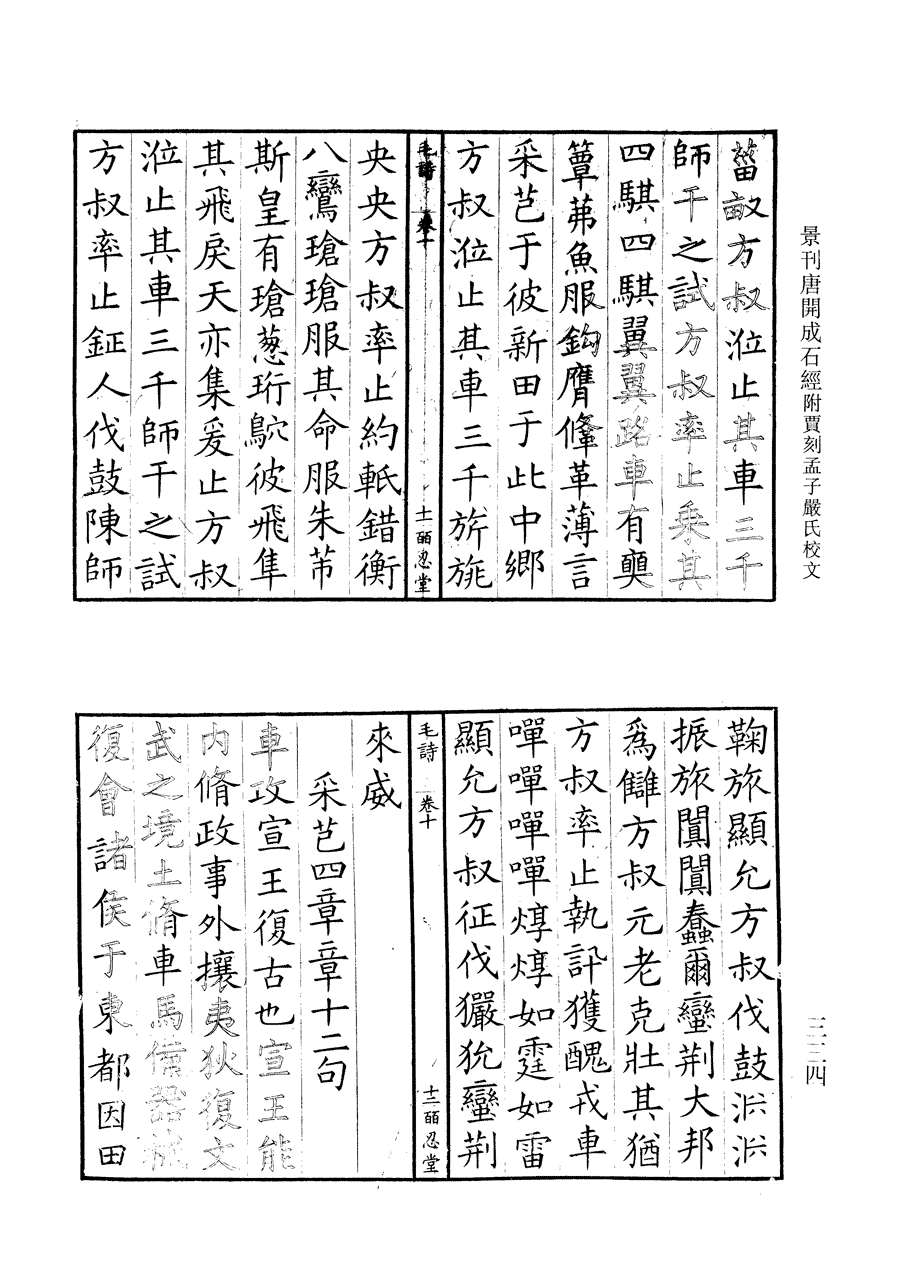 景刊唐開成石經附賈刻孟子嚴氏校文
三二四
菑畝方叔涖止其車三千
師干之試方叔率止乗其
四騏四騏翼翼路車有奭
簟茀魚服鉤膺鞗革薄言
采芑于彼新田于此中鄉
方叔涖止其車三千旂旐
毛詩 卷十 十一 皕忍堂
央央方叔率止約軧錯衡
八鸞瑲瑲服其命服朱芾
斯皇有瑲葱珩鴥彼飛隼
其飛戾天亦集爰止方叔
涖止其車三千師干之試
方叔率止鉦人伐鼓陳師
鞠旅顯允方叔伐鼓淵淵
振旅闐闐蠢爾蠻荆大邦
爲讎方叔元老克壯其猶
方叔率止執訊獲醜戎車
嘽嘽嘽嘽焞焞如霆如雷
顯允方叔征伐玁狁蠻荆
毛詩 卷十 十二 皕忍堂
來威
采芑四章章十二句
車攻宣王復古也宣王能
内脩政事外攘夷狄復文
武之境土脩車馬備器械
復會諸侯于東都因田